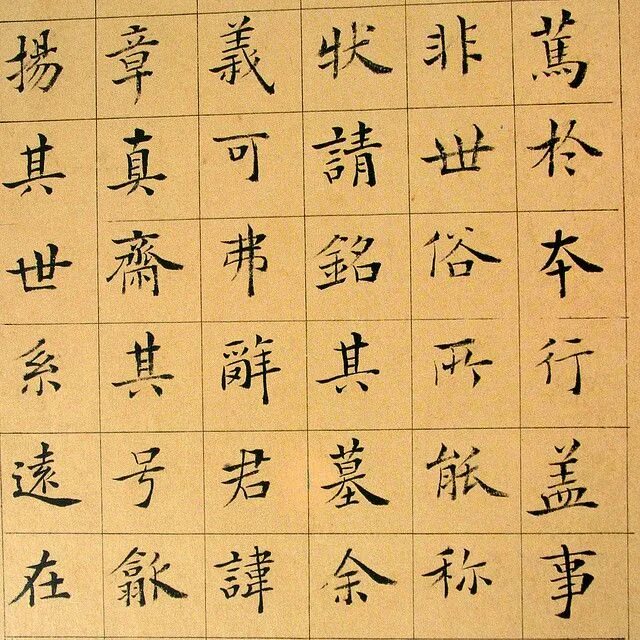 篤於本行盖事
非世俗所能称
狀請銘其墓余
義可弗辭君諱
章真齋其号龢
揚其世系遠在